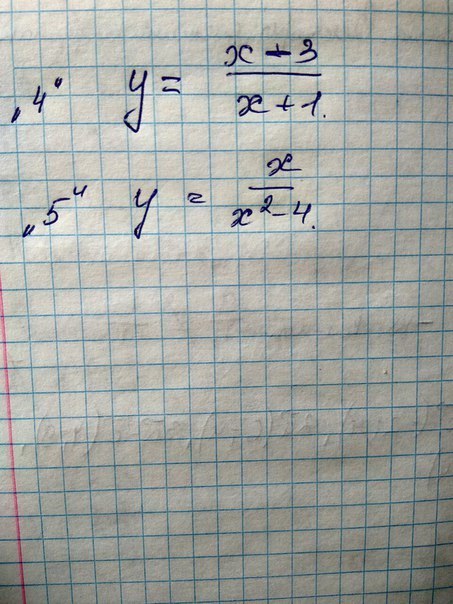 „4“ y = x + 3 / x + 1.
„5“ y = x / x² - 4.